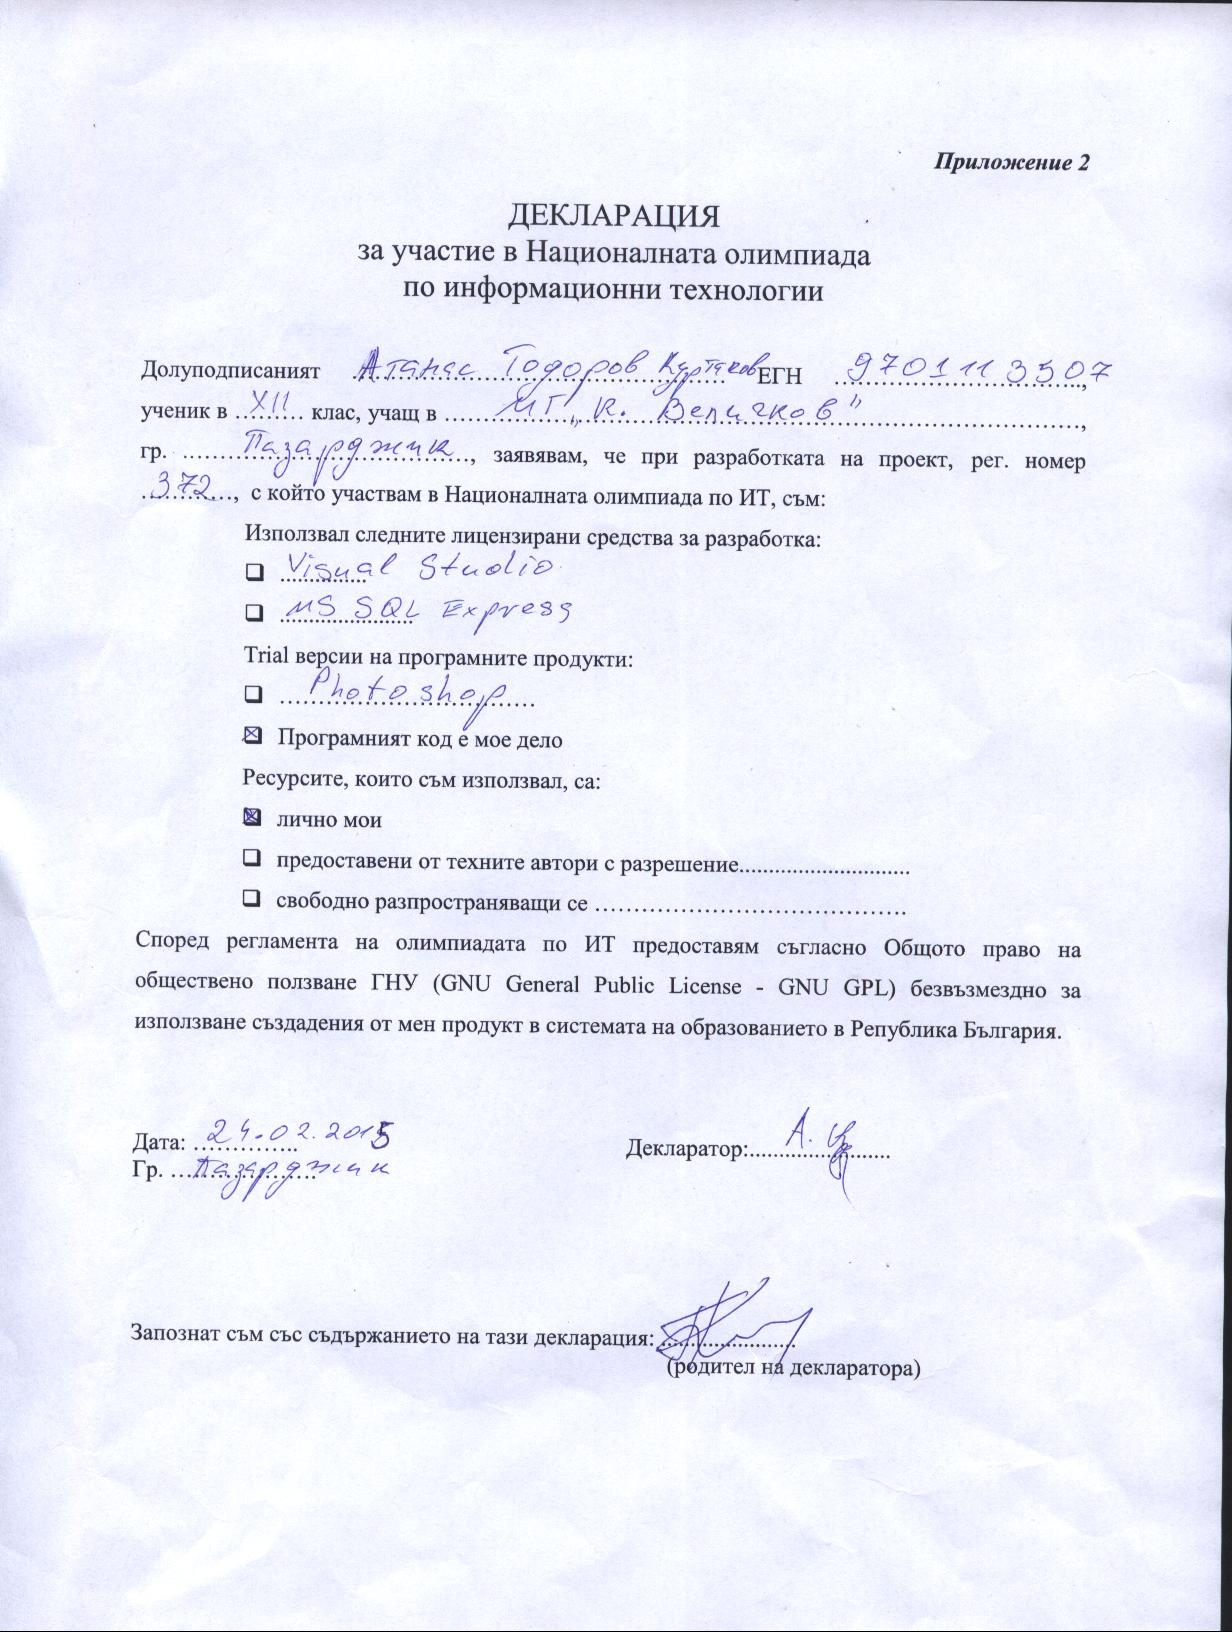 Приложение 2
ДЕКЛАРАЦИЯ
за участие в Националната олимпиада
по информационни технологии
Долуподписаният Атанас Тодоров Куртаков ЕГН 9701113507,
ученик в XII клас, учащ в МГ „К. Величков",
гр. Пазарджик, заявявам, че при разработката на проект, рег. номер
372, с който участвам в Националната олимпиада по ИТ, съм:
Използвал следните лицензирани средства за разработка:
Visual Studio
MS SQL Express
Trial версии на програмните продукти:
Photoshop
Програмният код е мое дело
Ресурсите, които съм използвал, са:
лично мои
предоставени от техните автори с разрешение.............................
свободно разпространяващи се ………………………………….
Според регламента на олимпиадата по ИТ предоставям съгласно Общото право на
обществено ползване ГНУ (GNU General Public License - GNU GPL) безвъзмездно за
използване създадения от мен продукт в системата на образованието в Република България.
Дата: 24.02.2015 Декларатор: А.
Гр. Пазарджик
Запознат съм със съдържанието на тази декларация:
(родител на декларатора)